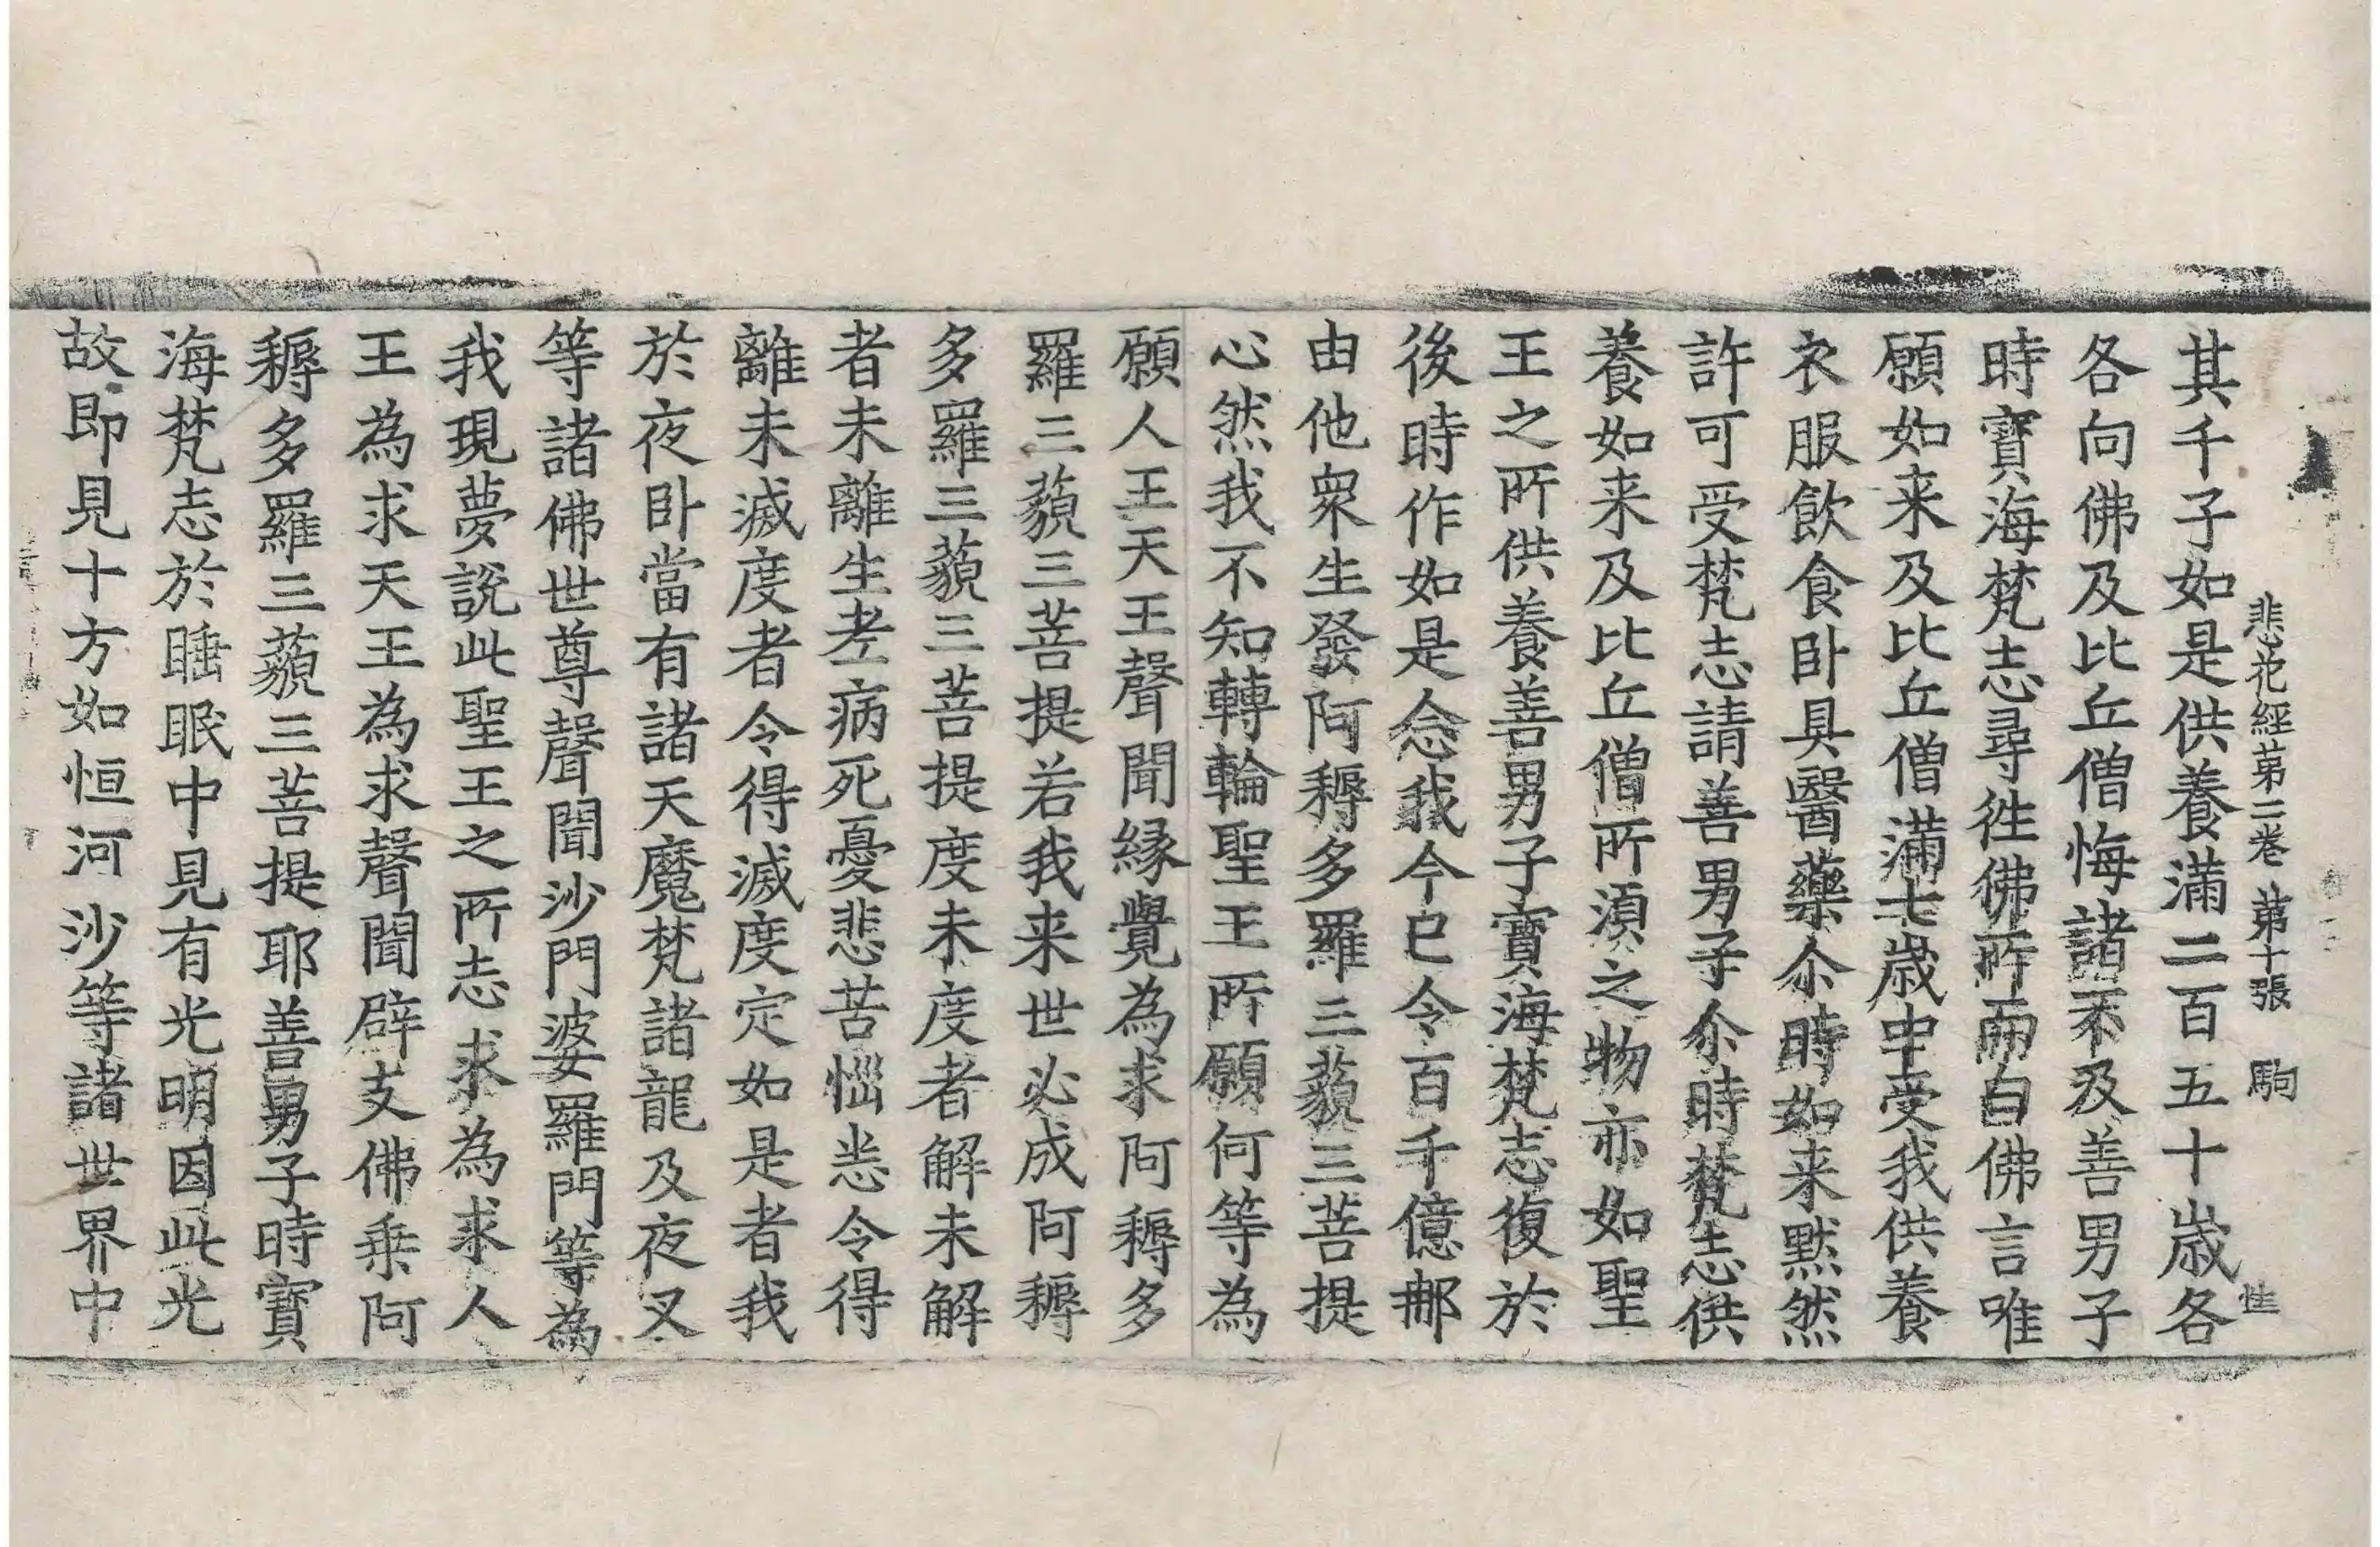 悲花經第二卷 第十張 駒
其千子如是供養滿二百五十歲各
各向佛及比丘僧悔諸不及善男子
時寶海梵志尋往佛所而白佛言唯
願如来及比丘僧滿七歲中受我供養
衣服飲食卧具醫藥尒時如来默然
許可受梵志請善男子尒時梵志供
養如来及比丘僧所湏之物亦如聖
王之所供養善男子寶海梵志復於
後時作如是念我今已令百千億那
由他衆生發阿耨多羅三藐三菩提
心然我不知轉輪聖王所願何等為
願人王天王聲聞緣覺為求阿耨多
羅三藐三菩提若我来世必成阿耨
多羅三藐三菩提度未度者解未解
者未離生老病死憂悲苦惱悉令得
離未滅度者令得滅度定如是者我
於夜卧當有諸天魔梵諸龍及夜叉
等諸佛世尊聲聞沙門婆羅門等為
我現夢說此聖王之所志求為求人
王為求天王為求聲聞辟支佛乗阿
耨多羅三藐三菩提耶善男子時寶
海梵志於睡眠中見有光明因此光
故即見十方如恒河沙等諸世界中